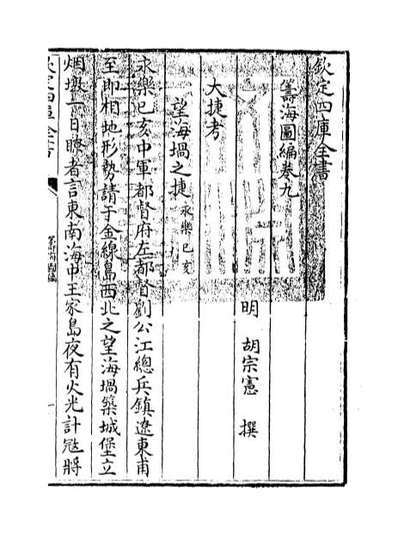 欽定四庫全書
籌海圖編卷九
明 胡宗憲 撰
大捷考
望海堝之捷 永樂己亥
永樂己亥中軍都督府左都督劉公江總兵鎮遼東甫
至即相地形勢請于金線島西北之望海堝築城堡立
烟墩一日瞭者言東南海中王家島夜有火光計寇將
欽定四庫全書